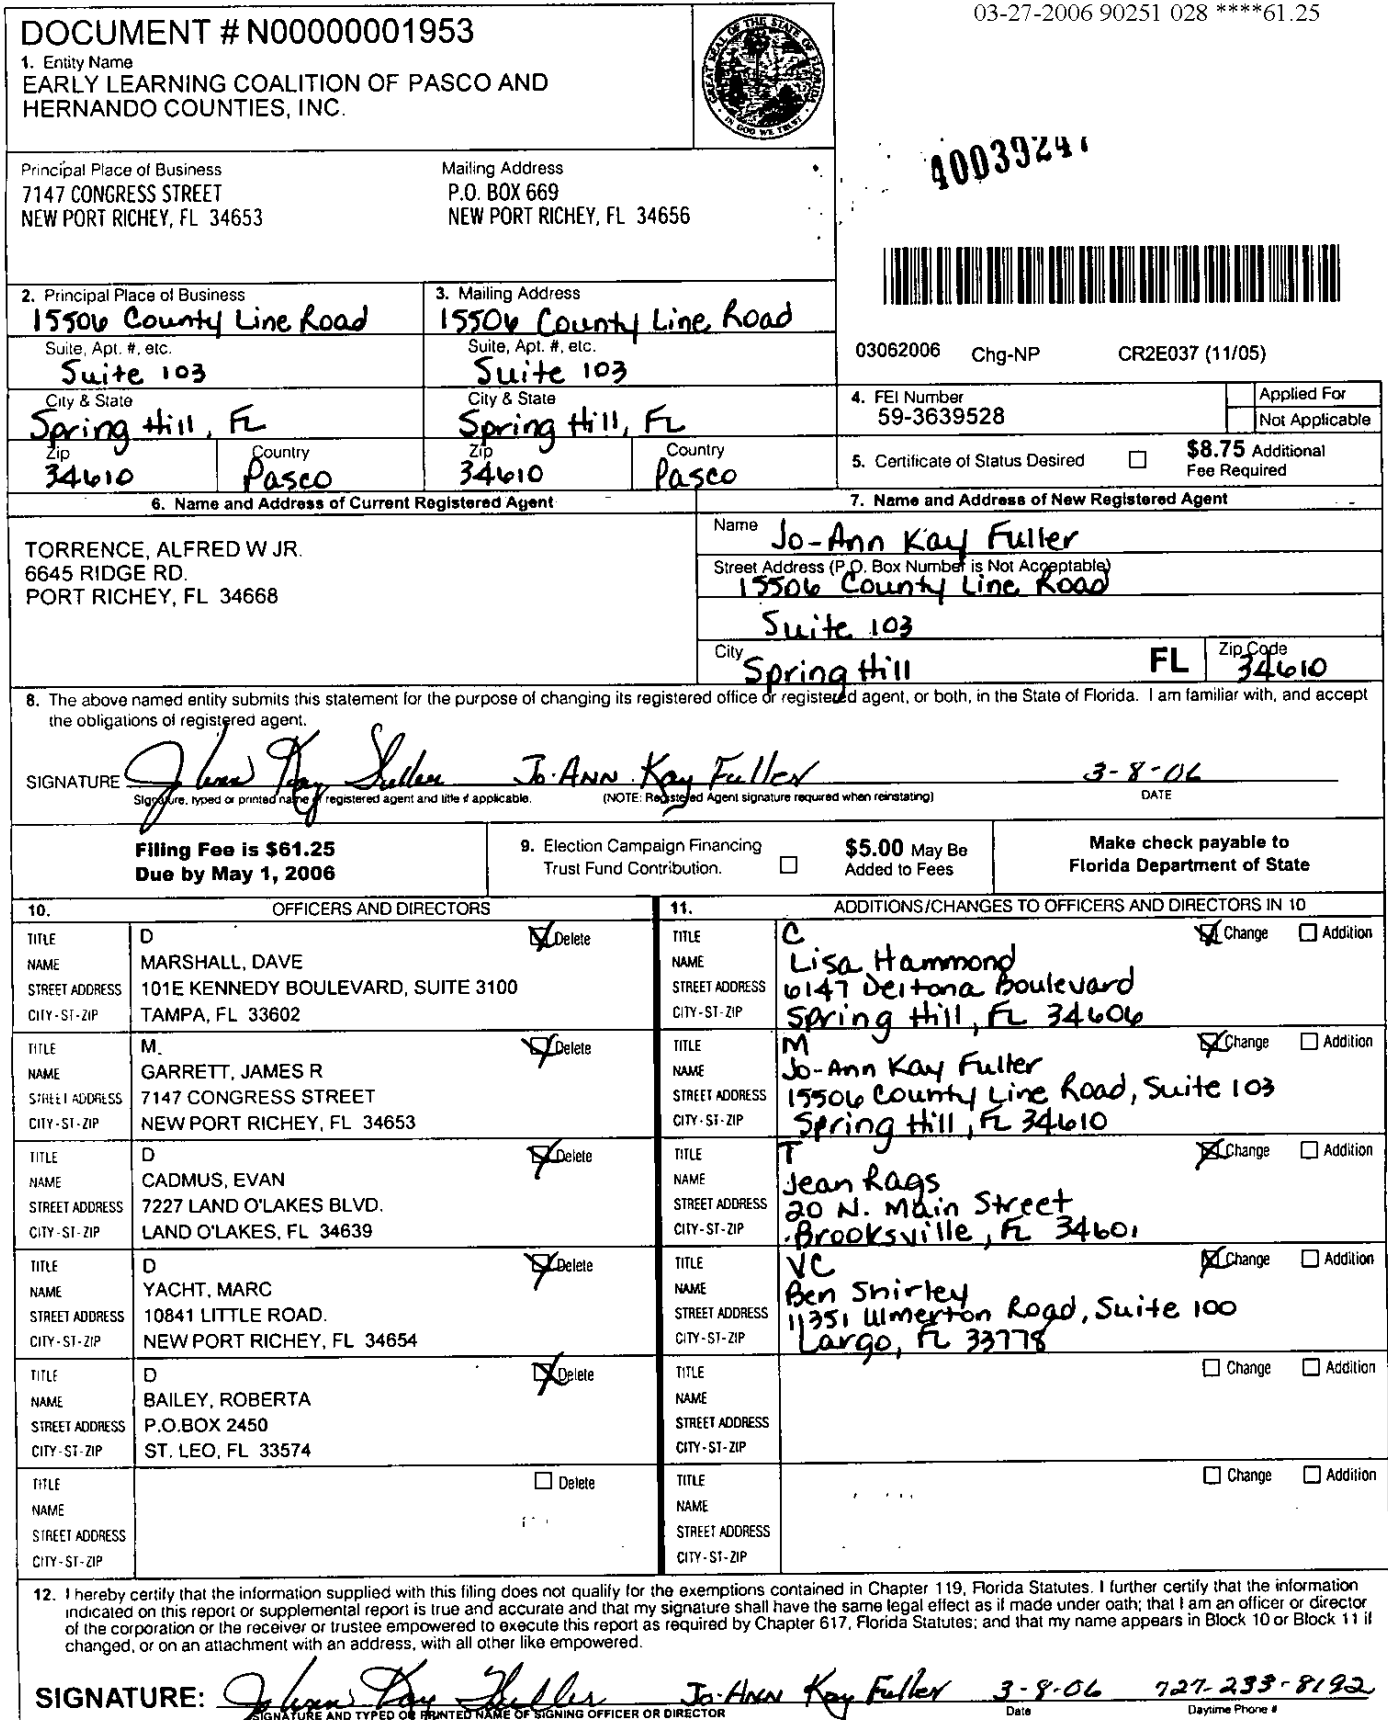 03-27-2006 90251 028 ****61.25
DOCUMENT # N00000001953
1. Entity Name
EARLY LEARNING COALITION OF PASCO AND
HERNANDO COUNTIES, INC.
GREAT SEAL OF THE STATE OF FLORIDA
IN GOD WE TRUST
Principal Place of Business
7147 CONGRESS STREET
NEW PORT RICHEY, FL 34653
Mailing Address
P.O. BOX 669
NEW PORT RICHEY, FL 34656
40039247
2. Principal Place of Business
15506 County Line Road
Suite, Apt. #, etc.
Suite 103
City & State
Spring Hill, FL
Zip
34610
Country
Pasco
3. Mailing Address
15506 County Line Road
Suite, Apt. #, etc.
Suite 103
City & State
Spring Hill, FL
Zip
34610
Country
Pasco
03062006 Chg-NP CR2E037 (11/05)
4. FEI Number
59-3639528
Applied For
Not Applicable
5. Certificate of Status Desired
$8.75 Additional
Fee Required
6. Name and Address of Current Registered Agent
TORRENCE, ALFRED W JR.
6645 RIDGE RD.
PORT RICHEY, FL 34668
7. Name and Address of New Registered Agent
Name Jo-Ann Kay Fuller
Street Address (P.O. Box Number is Not Acceptable)
15506 County Line Road
Suite 103
City Spring Hill FL Zip Code 34610
8. The above named entity submits this statement for the purpose of changing its registered office or registered agent, or both, in the State of Florida. I am familiar with, and accept
the obligations of registered agent.
SIGNATURE JoAnn Kay Fuller Jo-Ann Kay Fuller 3-8-06
Signature, typed or printed name of registered agent and title if applicable. (NOTE: Registered Agent signature required when reinstating) DATE
Filing Fee is $61.25
Due by May 1, 2006
9. Election Campaign Financing
Trust Fund Contribution.
$5.00 May Be
Added to Fees
Make check payable to
Florida Department of State
10. OFFICERS AND DIRECTORS
TITLE D Delete
NAME MARSHALL, DAVE
STREET ADDRESS 101E KENNEDY BOULEVARD, SUITE 3100
CITY-ST-ZIP TAMPA, FL 33602
TITLE M. Delete
NAME GARRETT, JAMES R
STREET ADDRESS 7147 CONGRESS STREET
CITY-ST-ZIP NEW PORT RICHEY, FL 34653
TITLE D Delete
NAME CADMUS, EVAN
STREET ADDRESS 7227 LAND O'LAKES BLVD.
CITY-ST-ZIP LAND O'LAKES, FL 34639
TITLE D Delete
NAME YACHT, MARC
STREET ADDRESS 10841 LITTLE ROAD.
CITY-ST-ZIP NEW PORT RICHEY, FL 34654
TITLE D Delete
NAME BAILEY, ROBERTA
STREET ADDRESS P.O.BOX 2450
CITY-ST-ZIP ST. LEO, FL 33574
TITLE Delete
NAME
STREET ADDRESS
CITY-ST-ZIP
11. ADDITIONS/CHANGES TO OFFICERS AND DIRECTORS IN 10
TITLE C Change Addition
NAME Lisa Hammond
STREET ADDRESS 6147 Deltona Boulevard
CITY-ST-ZIP Spring Hill, FL 34606
TITLE M Change Addition
NAME Jo-Ann Kay Fuller
STREET ADDRESS 15506 County Line Road, Suite 103
CITY-ST-ZIP Spring Hill, FL 34610
TITLE T Change Addition
NAME Jean Rags
STREET ADDRESS 20 N. Main Street
CITY-ST-ZIP Brooksville, FL 34601
TITLE VC Change Addition
NAME Ben Shirley
STREET ADDRESS 11351 Ulmerton Road, Suite 100
CITY-ST-ZIP Largo, FL 33778
TITLE Change Addition
NAME
STREET ADDRESS
CITY-ST-ZIP
TITLE Change Addition
NAME
STREET ADDRESS
CITY-ST-ZIP
12. I hereby certify that the information supplied with this filing does not qualify for the exemptions contained in Chapter 119, Florida Statutes. I further certify that the information
indicated on this report or supplemental report is true and accurate and that my signature shall have the same legal effect as if made under oath; that I am an officer or director
of the corporation or the receiver or trustee empowered to execute this report as required by Chapter 617, Florida Statutes; and that my name appears in Block 10 or Block 11 if
changed, or on an attachment with an address, with all other like empowered.
SIGNATURE: JoAnn Kay Fuller Jo-Ann Kay Fuller 3-8-06 727-233-8192
SIGNATURE AND TYPED OR PRINTED NAME OF SIGNING OFFICER OR DIRECTOR Date Daytime Phone #